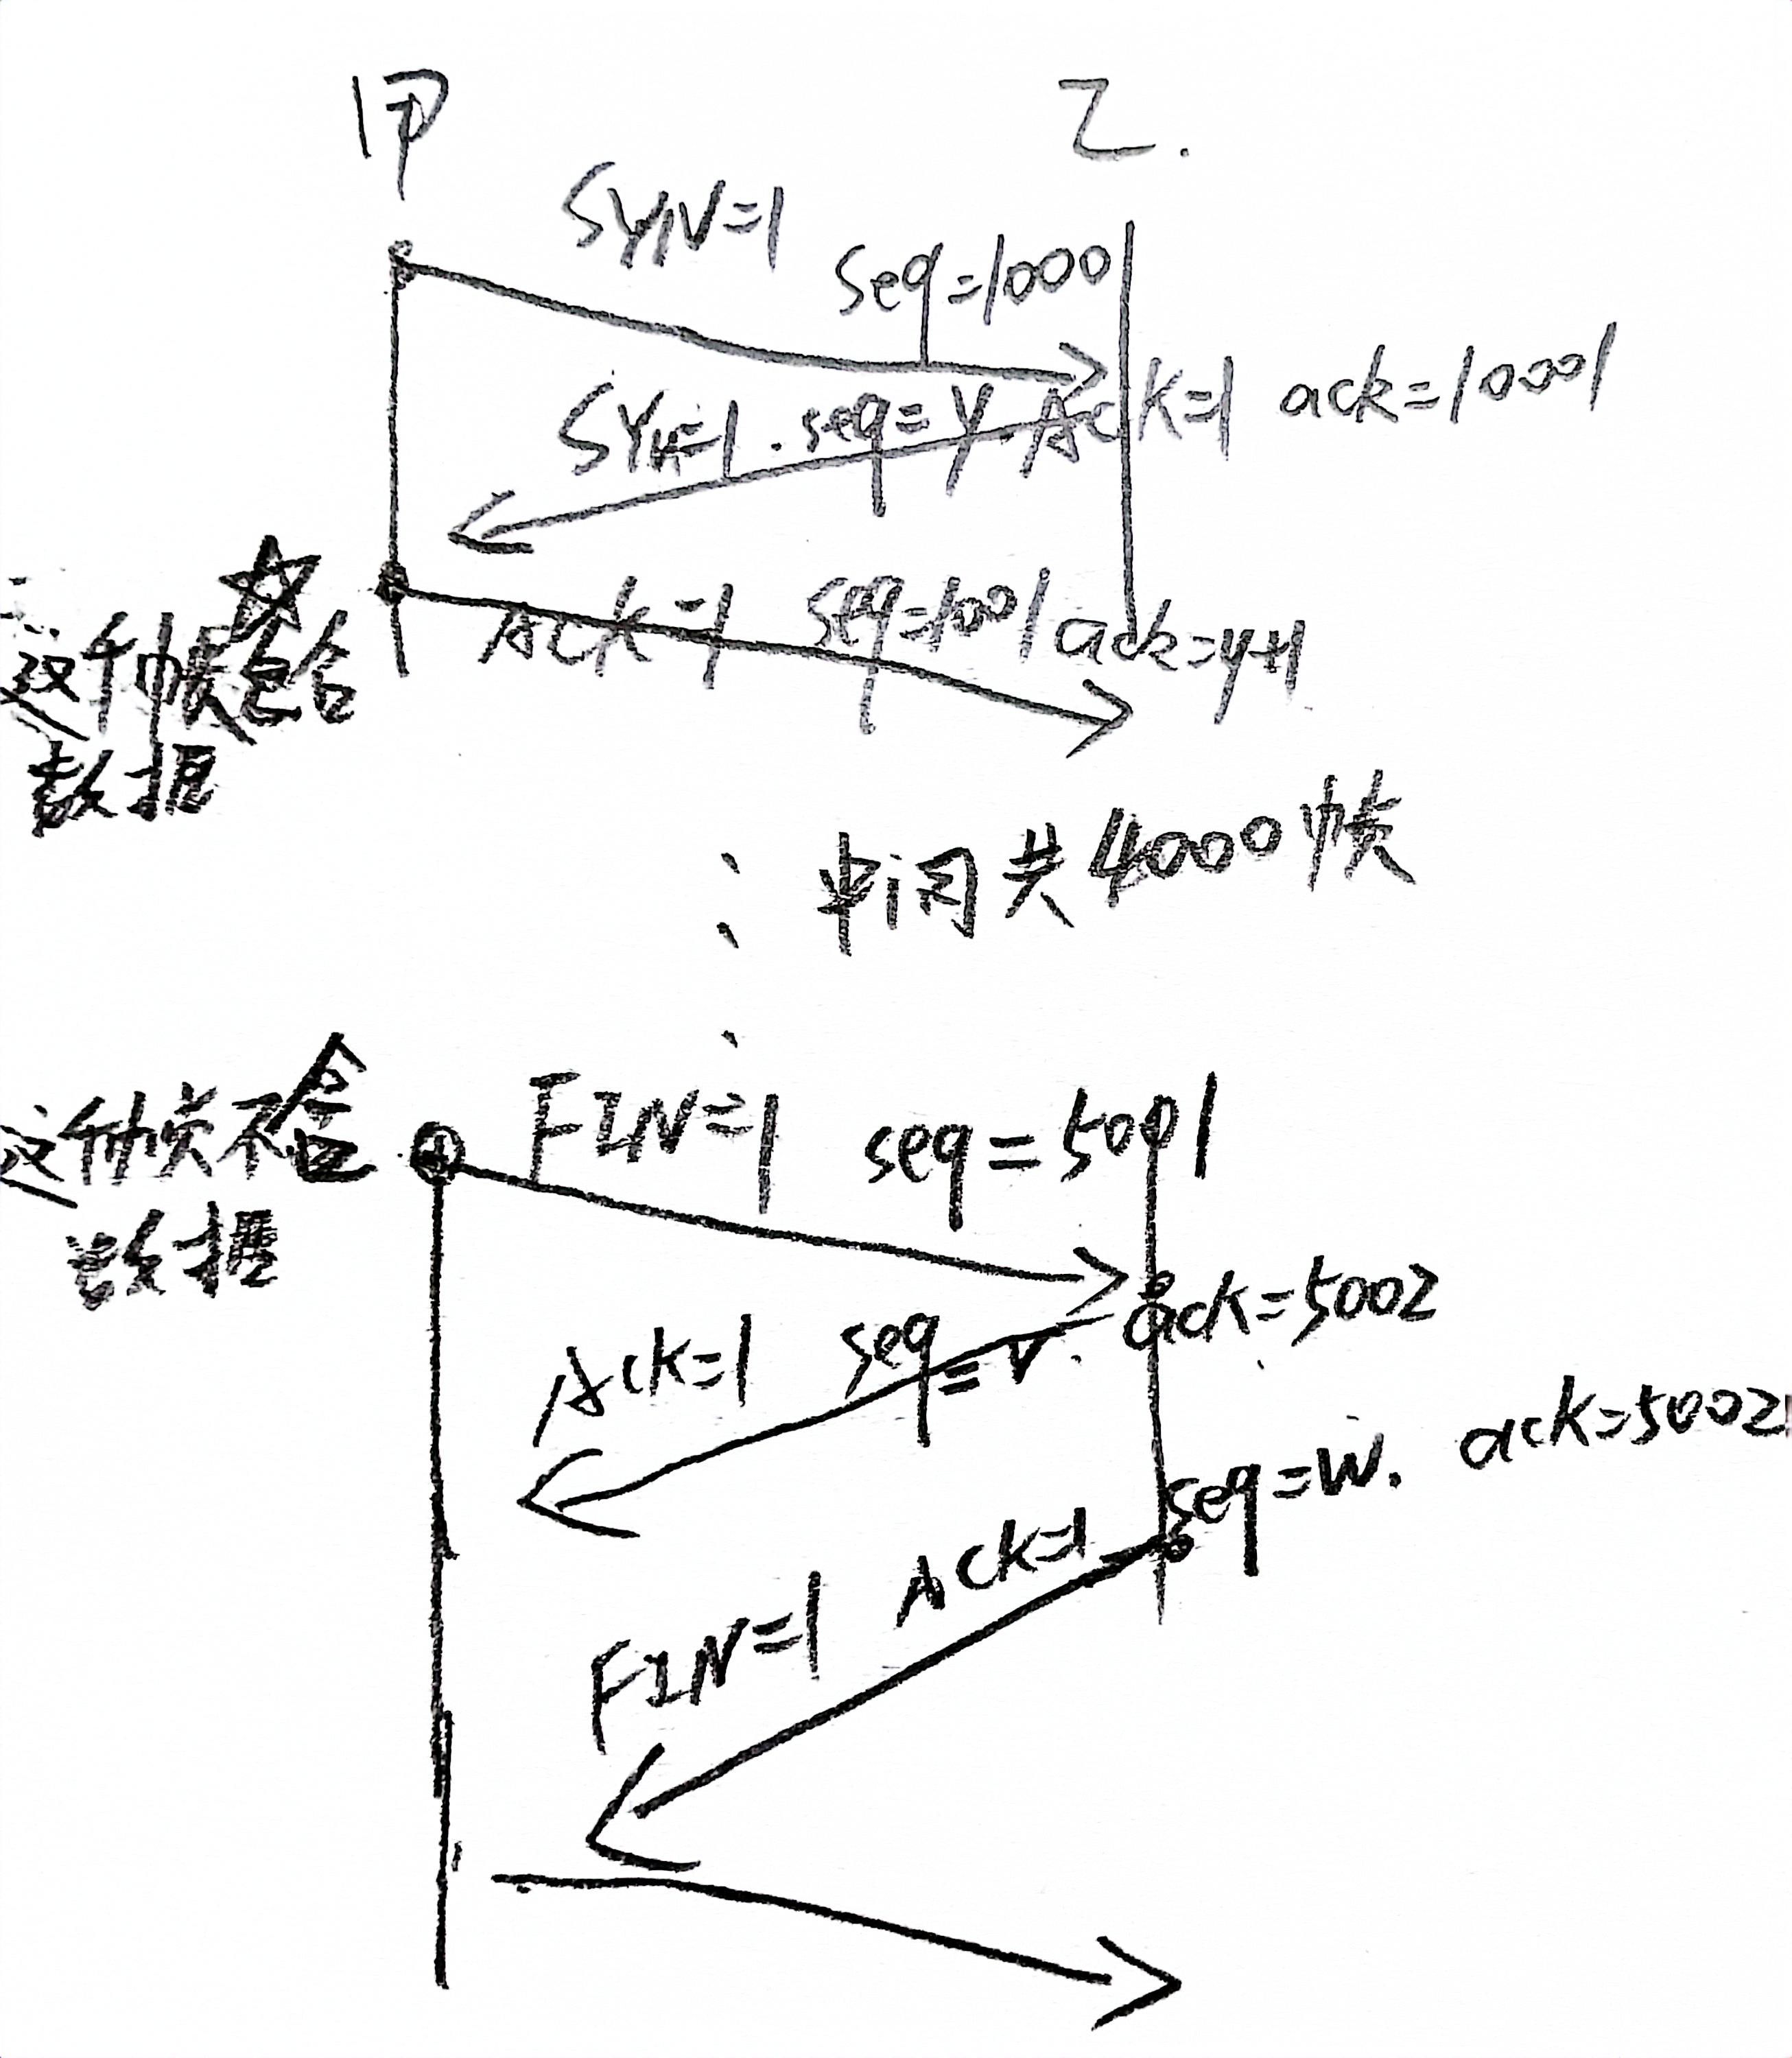 甲 乙.
SYN=1 seq=1000
SYN=1. seq=y. ACK=1 ack=10001
ACK=1 seq=1001 ack=y+1
☆
这种帧包含
数据
⋮ 中间共4000帧
这种帧不含
数据
FIN=1 seq=5001
ACK=1 seq=v. ack=5002
FIN=1 ACK=1 seq=w. ack=5002